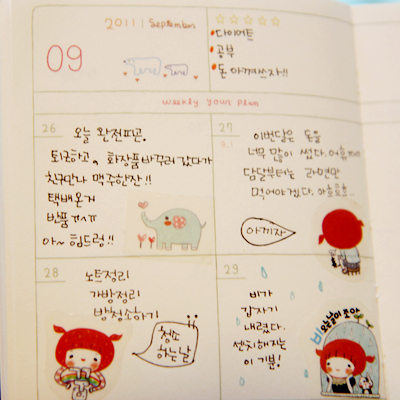 2011 | September
09
☆☆☆☆☆
다이어트
공부
돈 아껴쓰자!!
weekly your plan
26
오늘 완전피곤.
퇴근하고, 화장품바꾸러 갔다가
친구만나 맥주한잔!!
택배온거
반품
아~ 힘드렁!!
27
9.1
이번달은 돈을
너무 많이 썼다.
담달부터는 라면만
먹어야겠다. 아흐흐흐..
아끼자
28
노트정리
가방정리
방청소하기
청소
하는날
29
비가
갑자기
내렸다.
센치해지는
이 기분!
비오는날이 조아